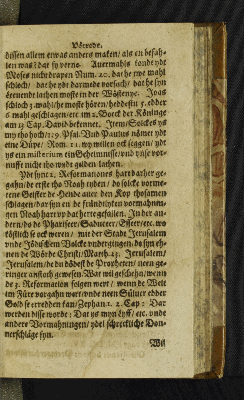 Vörrede.
dissen allem etwas anders maken/ als en befah-
len was? dat sy verne. Auermahls konde ydt
Moses nicht drapen Num. 20. dat he twe mahl
schloch/ dat he ydt darmede vorsach/ dat he syn
leuendt lathen moste in der Wöstenye. Joas
schloch 3. mahl/ he moste hören/ heddestu 5. edder
6 mahl geschlagen/ etc. im 2. Boeck der Könige
am 13 Cap. David bekennet, Item/ Solckes ys
my tho hoch/ 139 Psal. Und Paulus nömet ydt
eine Düpe/ Rom. 11. wy willen ock seggen/ ydt
ys ein misterium ein Geheimnisse/ vnd vnse vor-
nufft nicht tho wyde gelden lathen.
Ydt synt 2. Reformationes hart darher ge-
gahn/ de erste tho Noah tyden/ do solcke vorme-
tene Geister de Hende auer den Kop thosamen
schlagen/ dar syn en de fründtlyken vormahnun-
gen Noah hart vp dat herte gefallen. In der an-
dern/ do de Phariseer/ Saduceer/ Esseer/ etc. wo
köstlick se ock weren/ mit der Stadt Jerusalem
vnde Jüdischem Volcke vndergingen/ do syn eh-
nen de Wörde Christi/ Matth. 23. Jerusalem/
Jerusalem/ de du dödest de Propheten/ neen ge-
ringer anstoch gewesen. Wat wil geschehn/ wenn
de 3. Reformation folgen wert/ wenn de Welt
im Füre vorgahn wart/ vnde neen Süluer edder
Gold se erredden kan/ Zephan 1. 2. Cap: Dar
werden disse wörde: Dat ys myn Lyff/ etc. vnde
andere Vormahningen/ ydel schrecklike Don-
nerschläge syn.
Wil